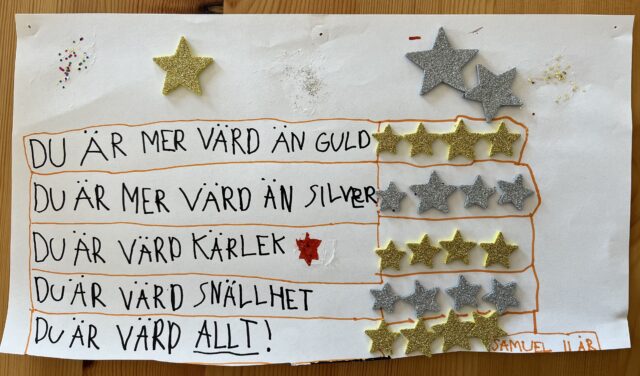 DU ÄR MER VÄRD ÄN GULD
DU ÄR MER VÄRD ÄN SILVER
DU ÄR VÄRD KÄRLEK
DU ÄR VÄRD SNÄLLHET
DU ÄR VÄRD ALLT!
SAMUEL 11 ÅR